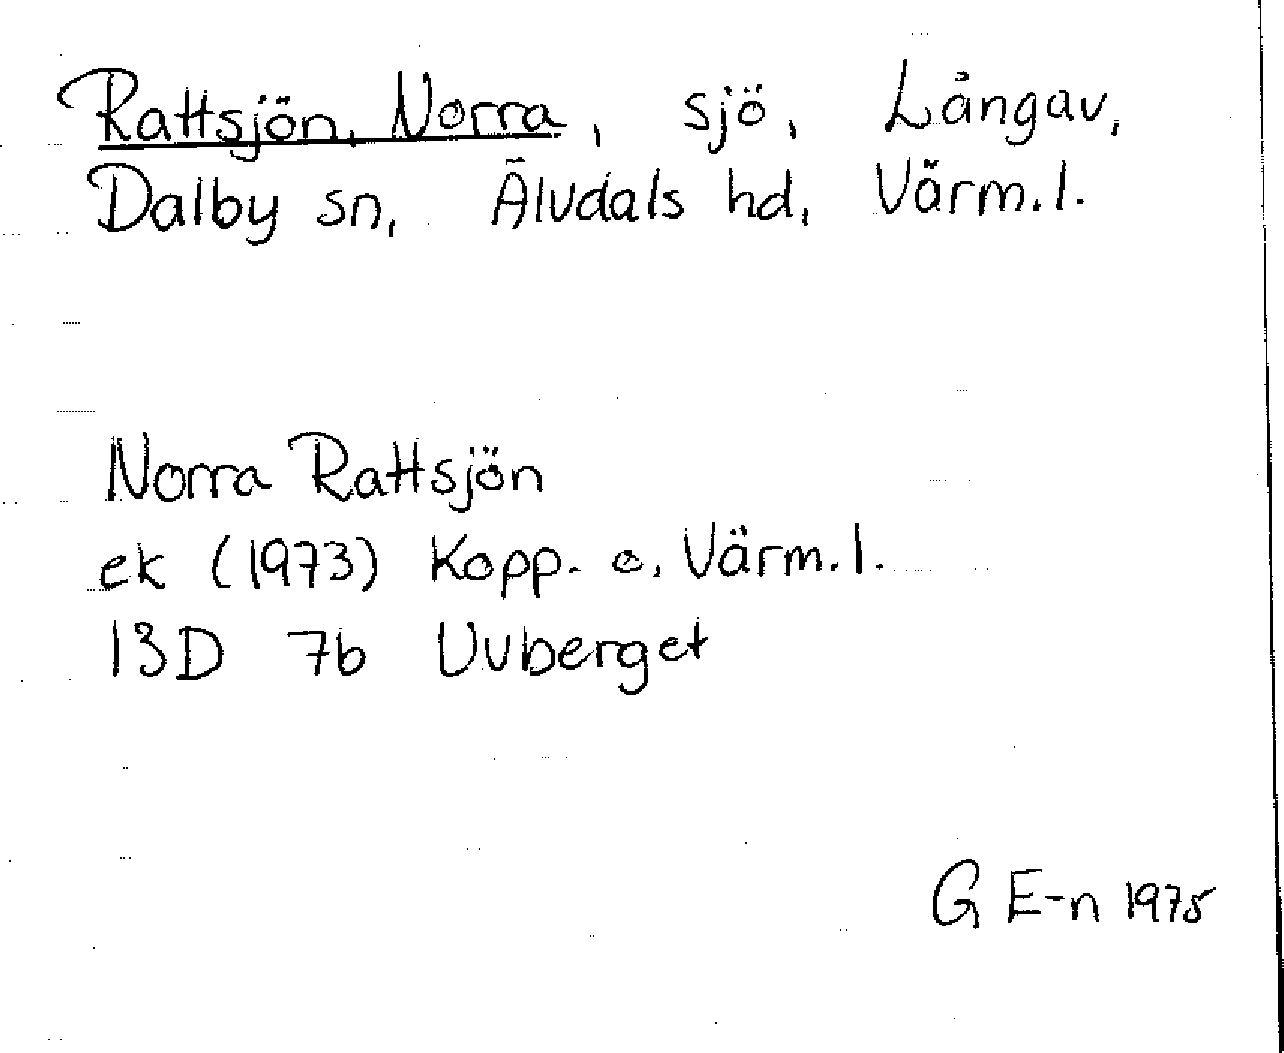 Rattsjön, Norra, sjö, Långav,
Dalby sn, Älvdals hd, Värm.l.
Norra Rattsjön
ek (1973) Kopp. o. Värm.l.
13D 7b Uvberget
G E-n 1975